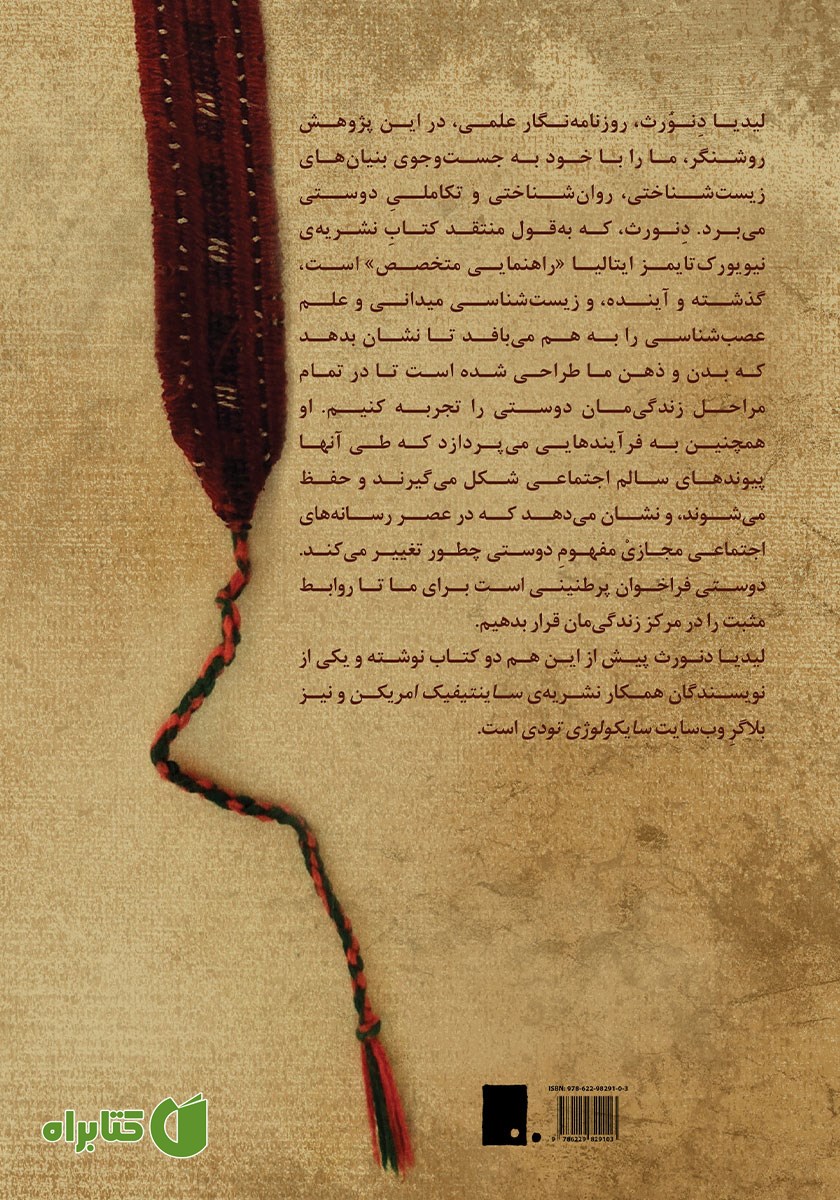 لیدیا دِنوُرث، روزنامه‌نگار علمی، در این پژوهش
روشنگر، ما را با خود به جست‌وجوی بنیان‌های
زیست‌شناختی، روان‌شناختی و تکاملیِ دوستی
می‌برد. دِنورث، که به‌قول منتقد کتابِ نشریه‌ی
نیویورک‌تایمز ایتالیا «راهنمایی متخصص» است،
گذشته و آینده، و زیست‌شناسی میدانی و علم
عصب‌شناسی را به هم می‌بافد تا نشان بدهد
که بدن و ذهن ما طراحی شده است تا در تمام
مراحل زندگی‌مان دوستی را تجربه کنیم. او
همچنین به فرآیندهایی می‌پردازد که طی آنها
پیوندهای سالم اجتماعی شکل می‌گیرند و حفظ
می‌شوند، و نشان می‌دهد که در عصر رسانه‌های
اجتماعی مجازیْ مفهومِ دوستی چطور تغییر می‌کند.
دوستی فراخوان پرطنینی است برای ما تا روابط
مثبت را در مرکز زندگی‌مان قرار بدهیم.
لیدیا دنورث پیش از این هم دو کتاب نوشته و یکی از
نویسندگان همکار نشریه‌ی ساینتیفیک امریکن و نیز
بلاگرِ وب‌سایت سایکولوژی تودی است.
ISBN: 978-622-98291-0-3
9 786229 829103
کتابراه